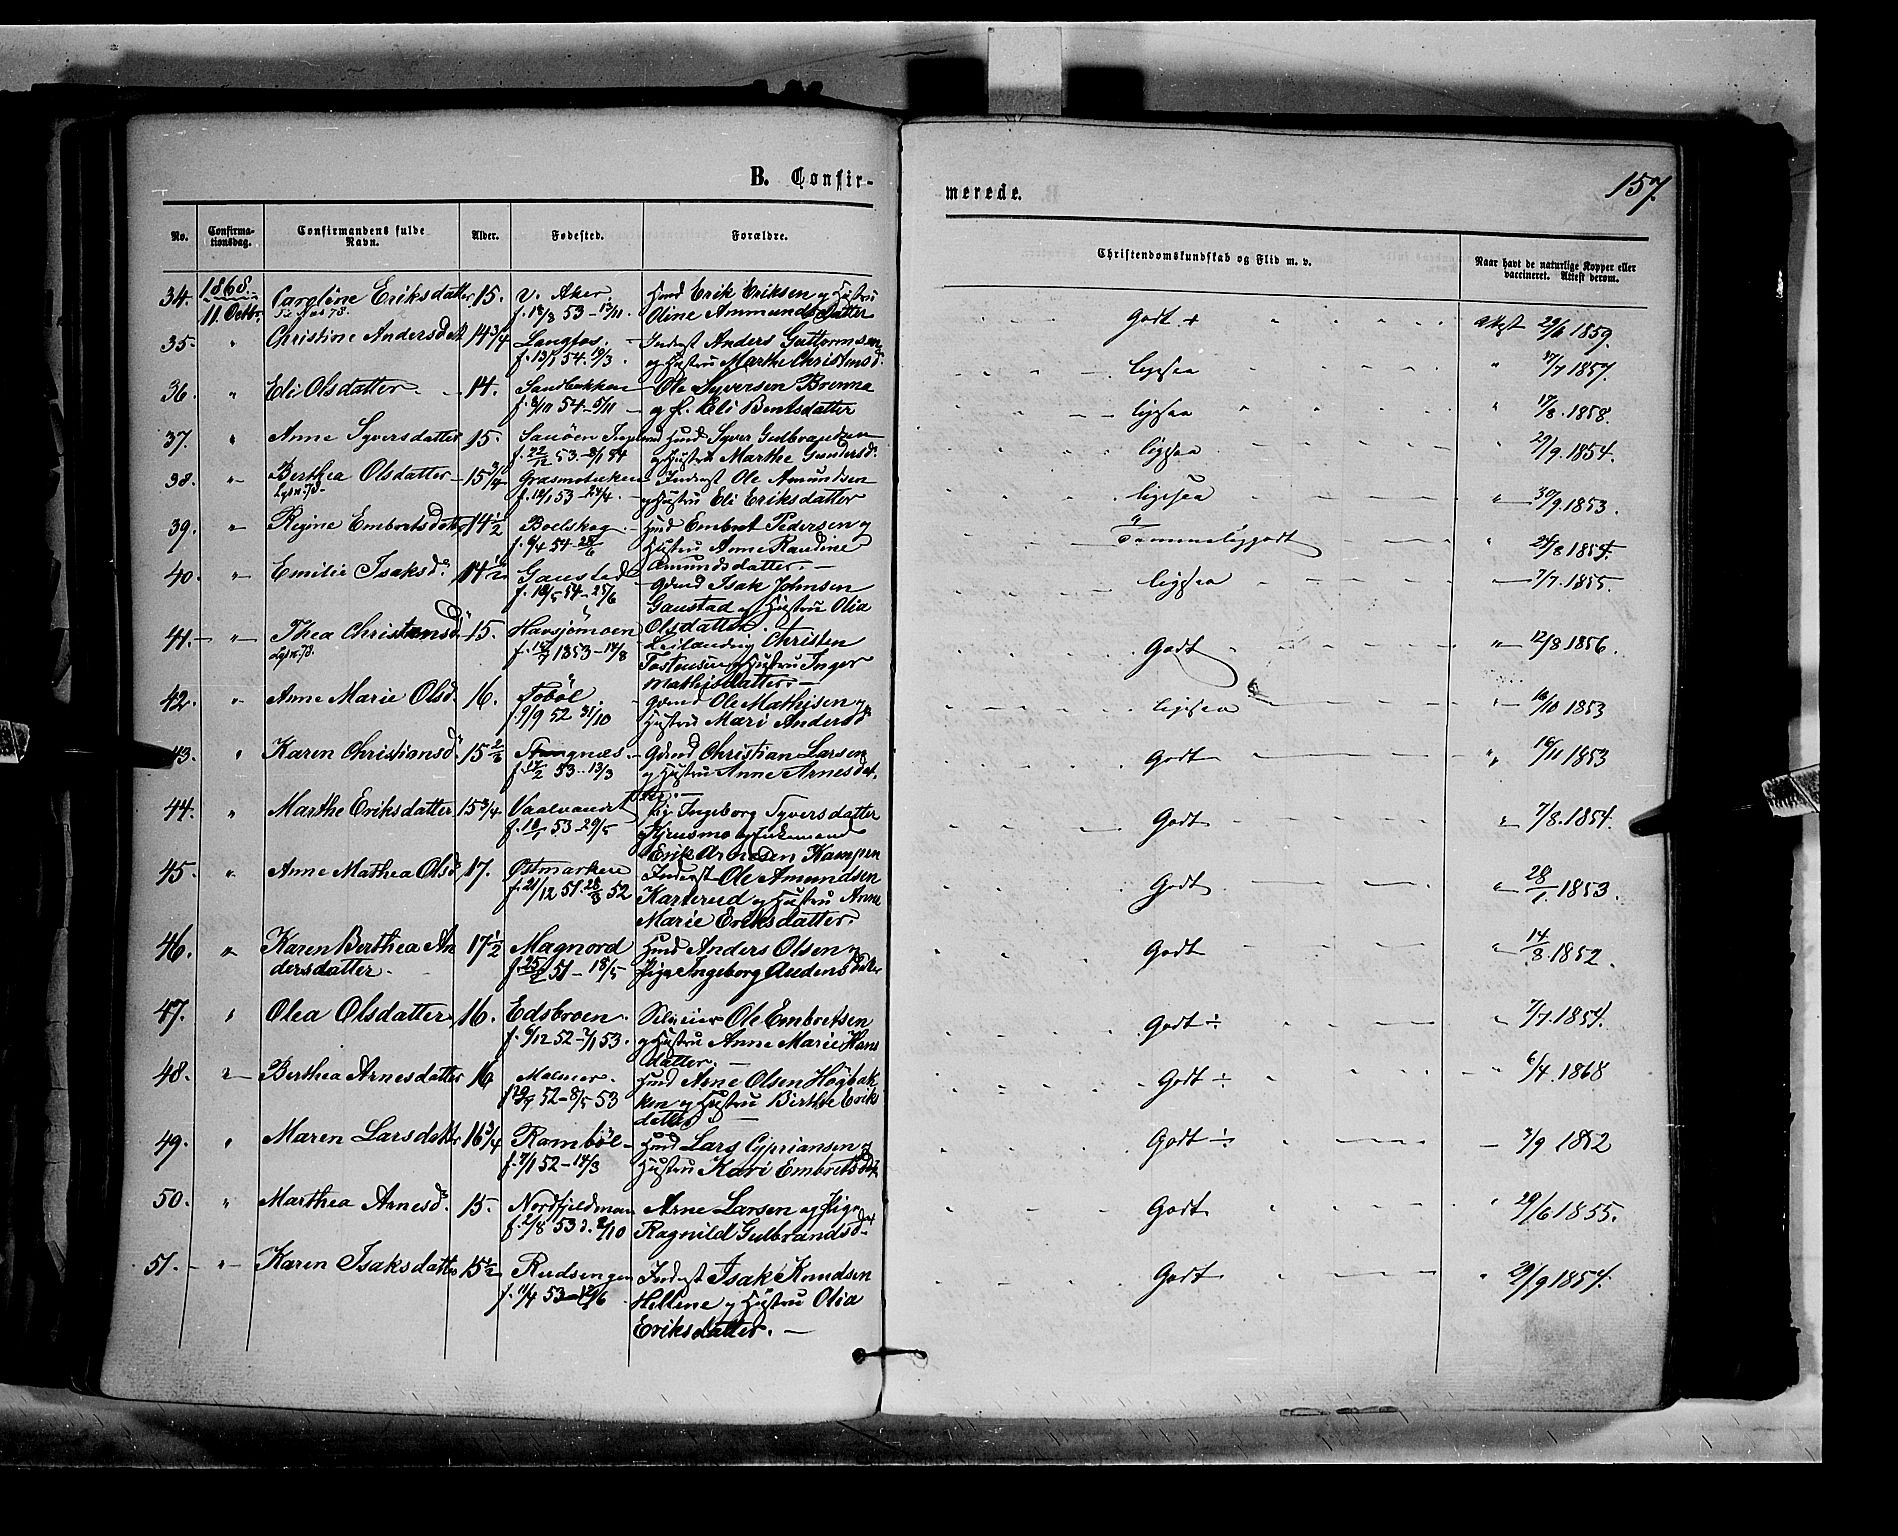 B. Confir-
merede.
157.
No.
Confirma-
tionsdag.
Confirmandens fulde
Navn.
Alder.
Fødested.
Forældre.
Christendomskundskab og Flid m. v.
Naar havt de naturlige Kopper eller
vaccineret. Attest derom.
1868.
34. 11. Octbr. Caroline Eriksdatter 15. v. Aker. Hmd Erik Eriksen og Hustru Godt + Attest 29/6 1859.
f. 18/8 53 - 13/11. Oline Ammundsdatter
35. " Christine Andersdtr 14 3/4 Langfos. Inderst Anders Guttormsen ligesaa " 7/7 1857.
f. 13/1 54. 19/3. og Hustru Marthe Christensd.
36. " Eli Olsdatter 14. Sandbakken Ole Syversen Brenna ligesaa " 17/8. 1858.
f. 8/10 54 - 5/11 og f. Eli Berntsdatter
37. " Anne Syversdatter 15. Hmd Syver Gulbrandsen ligesaa " 29/9. 1854.
f. 22/12 53 - 8/1 54 og Hustru Marthe Gundersd.
38. " Berthea Olsdatter 15 3/4 Grasmobakken Inderst Ole Amundsen ligesaa " 30/9. 1853.
f. 12/1 53 - 24/4. og Hustru Eli Eriksdatter
39. " Regine Embretsdatter 14 1/2 Boelskog. Hmd Embret Pedersen og Temmeliggodt " 24/8 1854.
f. 6/4 54 - 25/6 Hustru Anne Randine
Amundsdatter. —
40. " Emilie Isaksd. 14 1/2 Gaustad Gdmd Isak Johnsen ligesaa " 7/7. 1855.
f. 18/5 54 - 25/6 Gaustad og Hustru Olia
Olsdatter.
41. " Thea Christensd. 15. Havsjömoen Leilænding Christen Godt " 12/8 1856.
f. 14/7 1853 - 14/8 Tostensen og Hustru Inger
Mathisdatter. —
42. " Anne Marie Olsd. 16. Tobøl Gdmd Ole Mathisen og ligesaa " 16/10 1853
f. 9/9 52 31/10 Hustru Mari Andersd.
43. " Karen Christiansd. 15 2/3 Strangnæs. Gdmd Christian Larsen Godt " 16/11 1853
f. 17/2 53 - 13/3 og Hustru Anne Arnesdat-
ter. —
44. " Marthe Eriksdatter 15 3/4 Vaalvandet Pig Ingeborg Syversdatter Godt " 7/8. 1854.
f. 10/1 53 - 29/5 Gjeusmo og Enkemand
Erik Arnesen Kampen
45. " Anne Mathea Olsd. 17. Østmarken Inderst Ole Amundsen Godt " 28/1. 1853.
f. 21/12 51. 28/3 52 Karterud og Hustru Anne
Marie Eriksdatter.
46. " Karen Berthea An 17 1/2 Magnord Hmd Anders Olsen og Godt " 14/8. 1852.
dersdatter. f. 25/2 51 - 18/5 Pige Ingeborg Audensdatter
47. " Olea Olsdatter 16. Edsbroen. Selveier Ole Embretsen Godt ÷ " 7/7. 1854.
f. 6/12 52 - 7/1 53. og Hustru Anne Marie Hans
datter. —
48. " Berthea Arnesdatter 16 Malmer. Hmd Arne Olsen Högbak Godt ÷ " 6/4. 1868
52 - 8/5 53 ken og Hustru Birthe Eriks
datter —
49. " Maren Larsdatter 16 3/4 Rambøl Hmd Lars Cyprianssen og Godt ÷ — 3/9 1852
f. 7/1 52 - 14/3 Hustru Kari Embretsdtr
50. " Marthea Arnesd. 15. Nordfjeldmoen Arne Larsen og Pige Godt " 29/6 1855.
f. 2/8 53 d. 2/10 Ragnild Gulbrandsdat.
51. " Karen Isaksdatter 15 1/2 Rudsengen Inderst Isak Knudsen Godt " 29/9 1854.
f. 11/4 53 - 12/6 Hellene og Hustru Olia
Eriksdatter. —